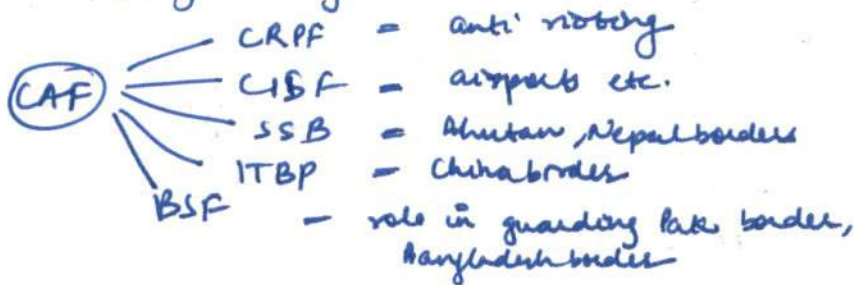 CAF
CRPF = anti rioting
CISF - airports etc.
SSB = Bhutan, Nepal borders
ITBP - China border
BSF - role in guarding Pak border,
Bangladesh border